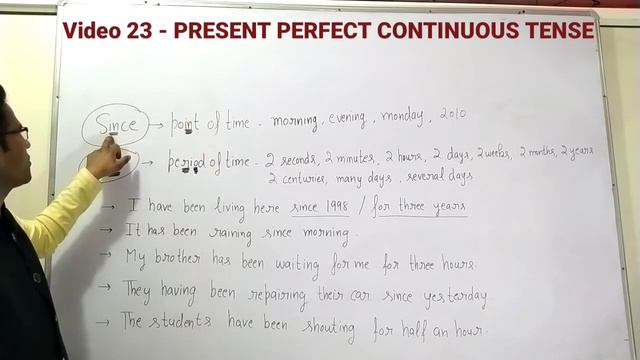 Video 23 - PRESENT PERFECT CONTINUOUS TENSE
Since → point of time - morning, evening, monday, 2010
→ period of time - 2 seconds, 2 minutes, 2 hours, 2 days, 2 weeks, 2 months, 2 years
2 centuries, many days, several days
→ I have been living here since 1998 / for three years
→ It has been raining since morning.
→ My brother has been waiting for me for three hours.
→ They having been repairing their car since yesterday.
→ The students have been shouting for half an hour.